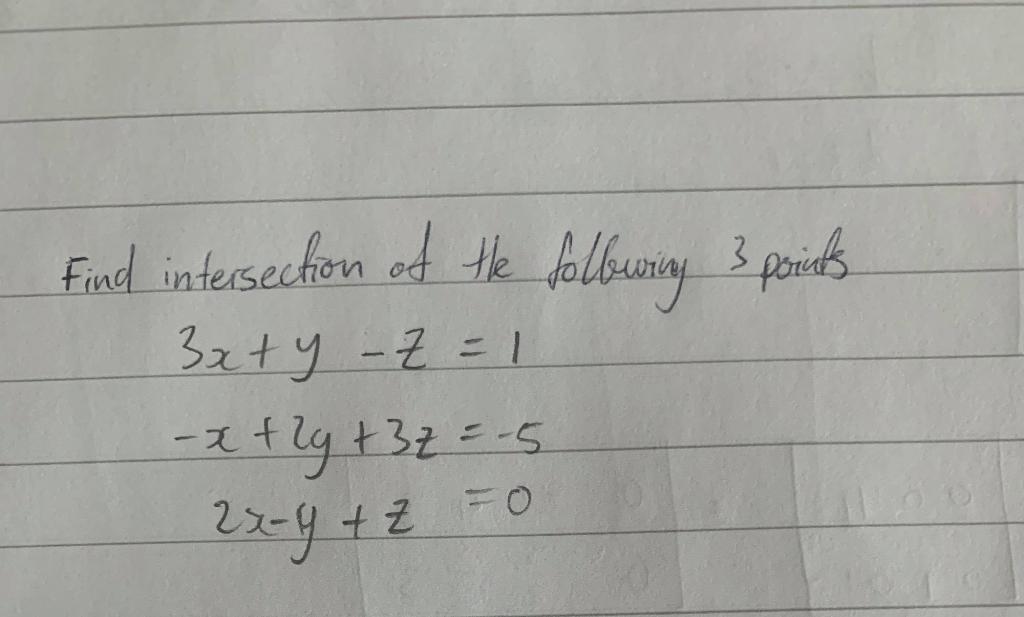 Find intersection of the following 3 points
3x + y - z = 1
-x + 2y + 3z = -5
2x - y + z = 0